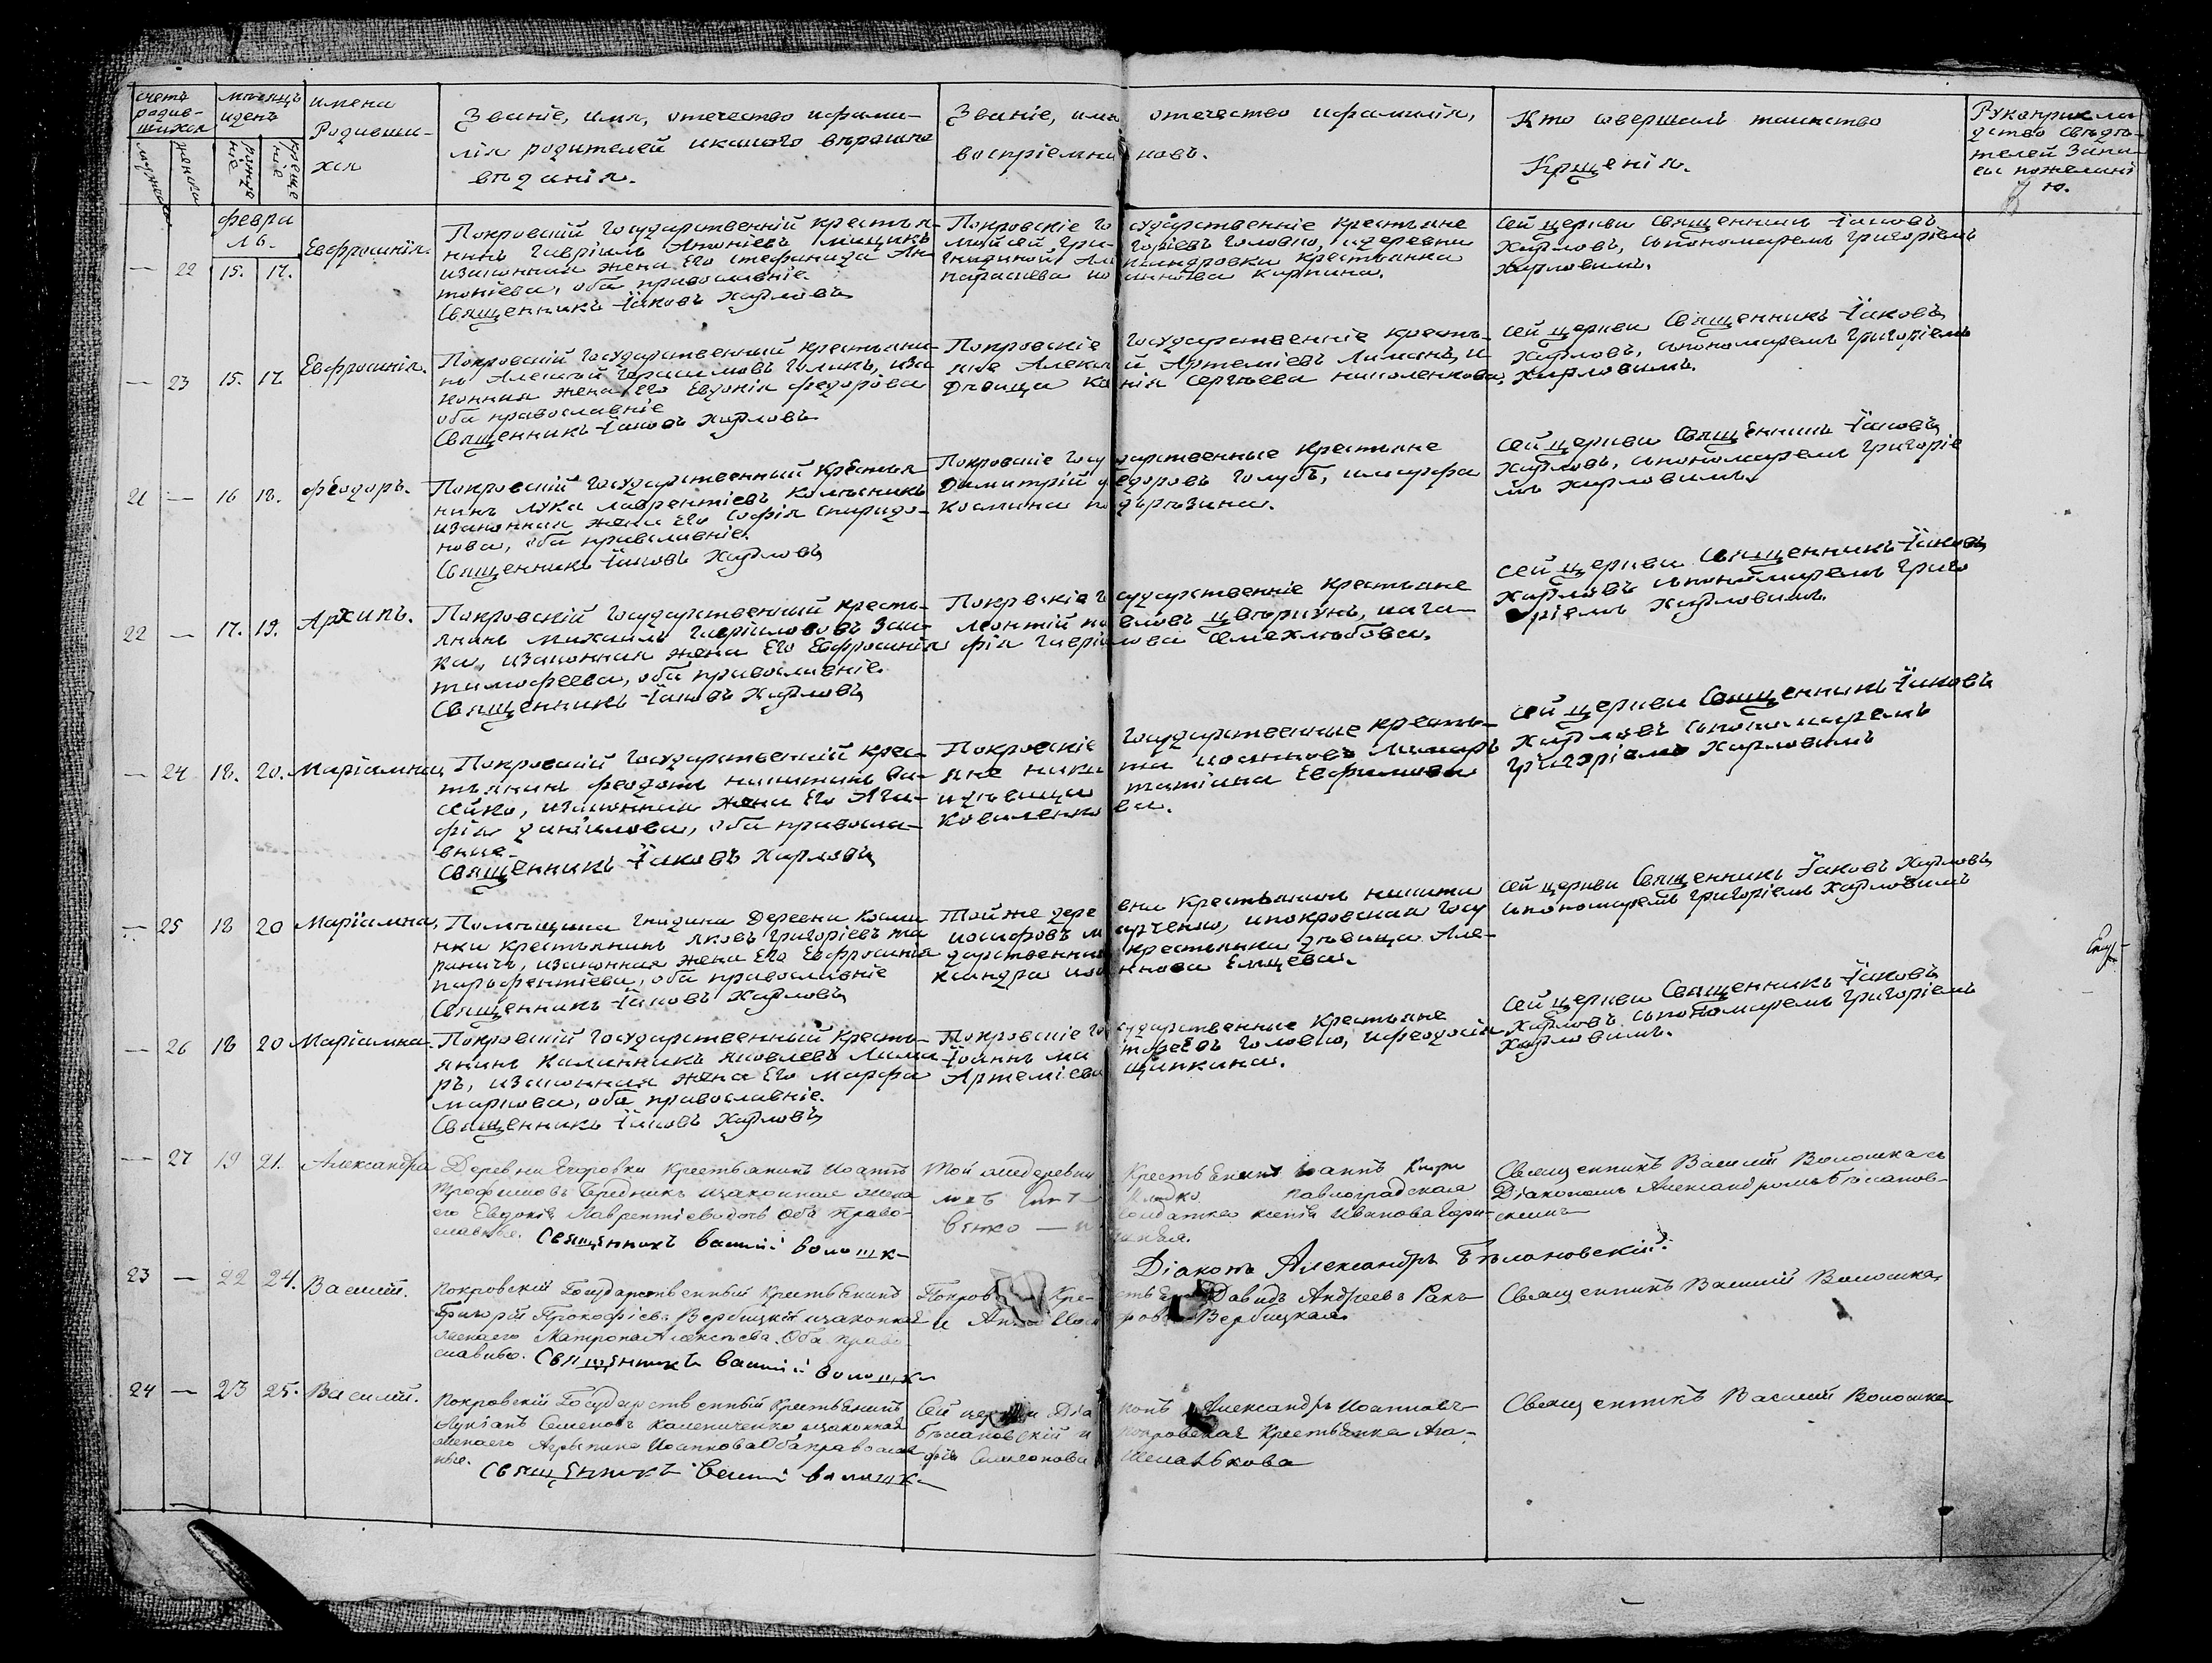 счетъ родив-шихся
мѣсяцъ и день
имена Родивши-хся
Званіе, имя, отечество и фами-
лія родителей и какого вѣроиспо
вѣданія.
Званіе, имя отечество и фамилія,
воспріемниковъ.
Кто совершалъ таинство
Крщенія.
Рукоприкла
дство свѣдѣ-
телей запи-
си по желані
ю.
мужеска
женска
рожде
ніе
креще
ніе
февра
ль.
— 22 15. 17. Евфросинія.
Покровскій государственній крестья-
нинъ Гавріилъ Антоніевъ
и законная жена Его Стефанида Ан-
тоніева, оба православніе
Священникъ Іаковъ Харловъ
Покровскіе государственніе крестьяне
Мойсей Григоріевъ Головко, и деревни
Гнидиной Александровки крестьянка
Параскева Карпина.
Сей церкви Священникъ Іаковъ
Харловъ, съ пономаремъ Григоріемъ
Харловимъ.
— 23 15. 17 Евфросинія.
Покровскій государственный крестьяни-
нъ Алексѣй Герасимовъ Голикъ, и за
конная жена Его Евдокія Федорова
оба православніе
Священникъ Іаковъ Харловъ
Покровскіе государственніе кресть-
яне Алексѣй Артеміевъ Лимаръ, и
Дѣвица Сергѣева Николенкова.
Сей церкви Священникъ Іаковъ
Харловъ, съ пономаремъ Григоріемъ
Харловимъ.
21 — 16 18. Феодоръ.
Покровскій государственный крестья
нинъ Лука Лаврентіевъ Колѣсникъ
и законная жена Его Софія Спиридо-
нова, оба православніе.
Священникъ Іаковъ Харловъ
Покровскіе государственные крестьяне
Димитрій Федоровъ Голубъ, и марфа
Космина
Сей церкви Священникъ Іаковъ
Харловъ, съ пономаремъ Григоріе
мъ Харловимъ.
22 — 17. 19. Архипъ.
Покровскій государственный кресть-
янинъ Михаилъ Гавріиловъ Заи-
ка, и законная жена Его Евфросинія
Тимофеева, оба православніе.
Священникъ Іаковъ Харловъ
Покрвскіе государственніе крестьяне
Леонтій Павловъ и ага-
фія Гавріилова
Сей церкви Священникъ Іаковъ
Харловъ съ пономаремъ Григо
ріемъ Харловимъ
— 24 18. 20. Маріамна
Покровскій государственній крес-
тьянинъ Феодотъ Никитинъ
и законная жена Его Ага-
фія Даніилова, оба правосла-
вние.
Священникъ Іаковъ Харловъ
Покровскіе государственные кресть-
яне Никита Иоанновъ Лимаръ
и дѣвица Татіана Евфимова
Коваленкова.
Сей церкви Священникъ Іаковъ
Харловъ съ пономаремъ
Григоріемъ Харловимъ
— 25 18 20 Маріамна,
Помѣщика Гнидина Деревни
крестьянинъ Яковъ Григоріевъ Та
раничъ, и законная жена Его Евфросинія
Парфентіева, оба православніе
Священникъ Іаковъ Харловъ
Той же деревни крестьянинъ Никита
Иосифовъ Марченко, и покровская госу
дарственная крестьянка дѣвица Але-
ксандра Иоаннова Емцева.
Сей церкви Священникъ Іаковъ Харловъ
съ пономаремъ Григоріемъ Харловимъ
— 26 18 20 Маріамна.
Покровскій государственный кресть-
янинъ Калинникъ Яковлевъ Лима
ръ, и законная жена Его Марфа
Маркова, оба православніе.
Священникъ Іаковъ Харловъ
Покровскіе государственные крестьяне
Іоаннъ Матвеевъ Головко, и Феодосія
Артеміева Щипкина.
Сей церкви Священникъ Іаковъ
Харловъ съ пономаремъ Григоріемъ
Харловимъ.
— 27 19 21. Александра
Деревни Егоровки крестьянинъ Иоаннъ
Трофимовъ Бредникъ и законная жена
его Евдокія Лаврентіева Оба право-
славные. Священникъ Василій Волошк
Той же деревни крестьянинъ Іоаннъ
Павлоградская
солдатка Ксенія Иванова
Священникъ Василій Волошка съ
Діакономъ Александромъ Бѣлановскимъ
Діаконъ Александръ Бѣлановскій.
23 — 22 24. Василій.
Покровскій Государственный Крестьянинъ
Григорій Прокофіевъ Вербицкій и законная
жена его Матрона Алексѣева. Оба право
славные. Священникъ Василій Волошк
Покров Кре-стьян Давидъ Андреевъ Ракъ
и Анна Вербицкая.
Священникъ Василій Волошка
24 — 23 25. Василій.
Покровскій Государственный Крестьянинъ
Лукіанъ Семеновъ Калениченко и законная
жена его Агрыпина Иоаннова Оба православ
ные. Священникъ Василій Волошк
Сей церкви Діаконъ Александръ Иоанновъ
Бѣлановскій и покровская Крестьянка Ага-
фія Симеонова
Священникъ Василій Волошка